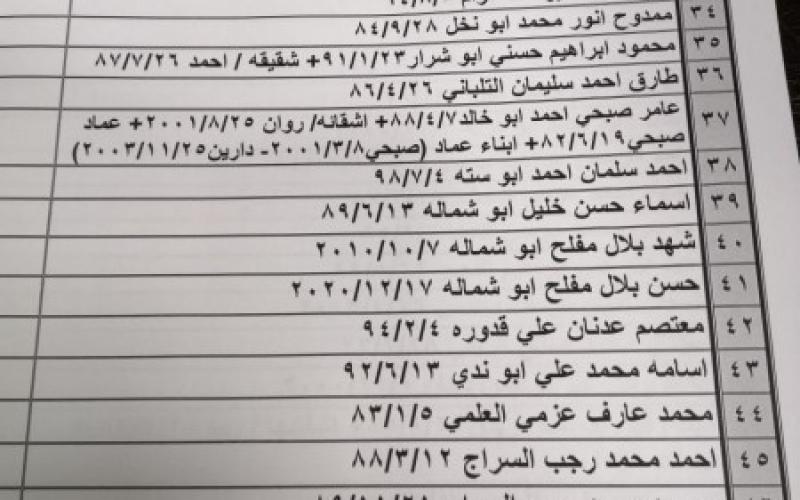 ٣٤ ممدوح انور محمد ابو نخل ٨٤/٩/٢٨
٣٥ محمود ابراهيم حسني ابو شرار٩١/١/٢٣+ شقيقه / احمد ٨٧/٧/٢٦
٣٦ طارق احمد سليمان التلباني ٨٦/٤/٢٦
٣٧ عامر صبحي احمد ابو خالد٨٨/٤/٧+ اشقائه/ روان ٢٠٠١/٨/٢٥+ عماد
صبحي٨٢/٦/١٩+ ابناء عماد (صبحي٢٠٠١/٣/٨- دارين٢٠٠٣/١١/٢٥)
٣٨ احمد سلمان احمد ابو سته ٩٨/٧/٤
٣٩ اسماء حسن خليل ابو شماله ٨٩/٦/١٣
٤٠ شهد بلال مفلح ابو شماله ٢٠١٠/١٠/٧
٤١ حسن بلال مفلح ابو شماله ٢٠٢٠/١٢/١٧
٤٢ معتصم عدنان علي قدوره ٩٤/٢/٤
٤٣ اسامه محمد علي ابو ندي ٩٢/٦/١٣
٤٤ محمد عارف عزمي العلمي ٨٣/١/٥
٤٥ احمد محمد رجب السراج ٨٨/٣/١٢